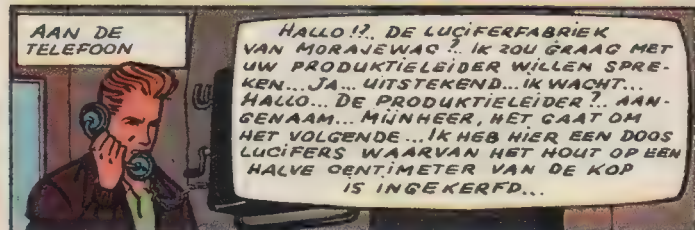 AAN DE
TELEFOON
HALLO!?.. DE LUCIFERFABRIEK
VAN MORAJEWAC?. IK ZOU GRAAG MET
UW PRODUKTIELEIDER WILLEN SPRE-
KEN... JA... UITSTEKEND... IK WACHT...
HALLO... DE PRODUKTIELEIDER?. AAN-
GENAAM... MIJNHEER, HET GAAT OM
HET VOLGENDE... IK HEB HIER EEN DOOS
LUCIFERS WAARVAN HET HOUT OP EEN
HALVE CENTIMETER VAN DE KOP
IS INGEKERFD...